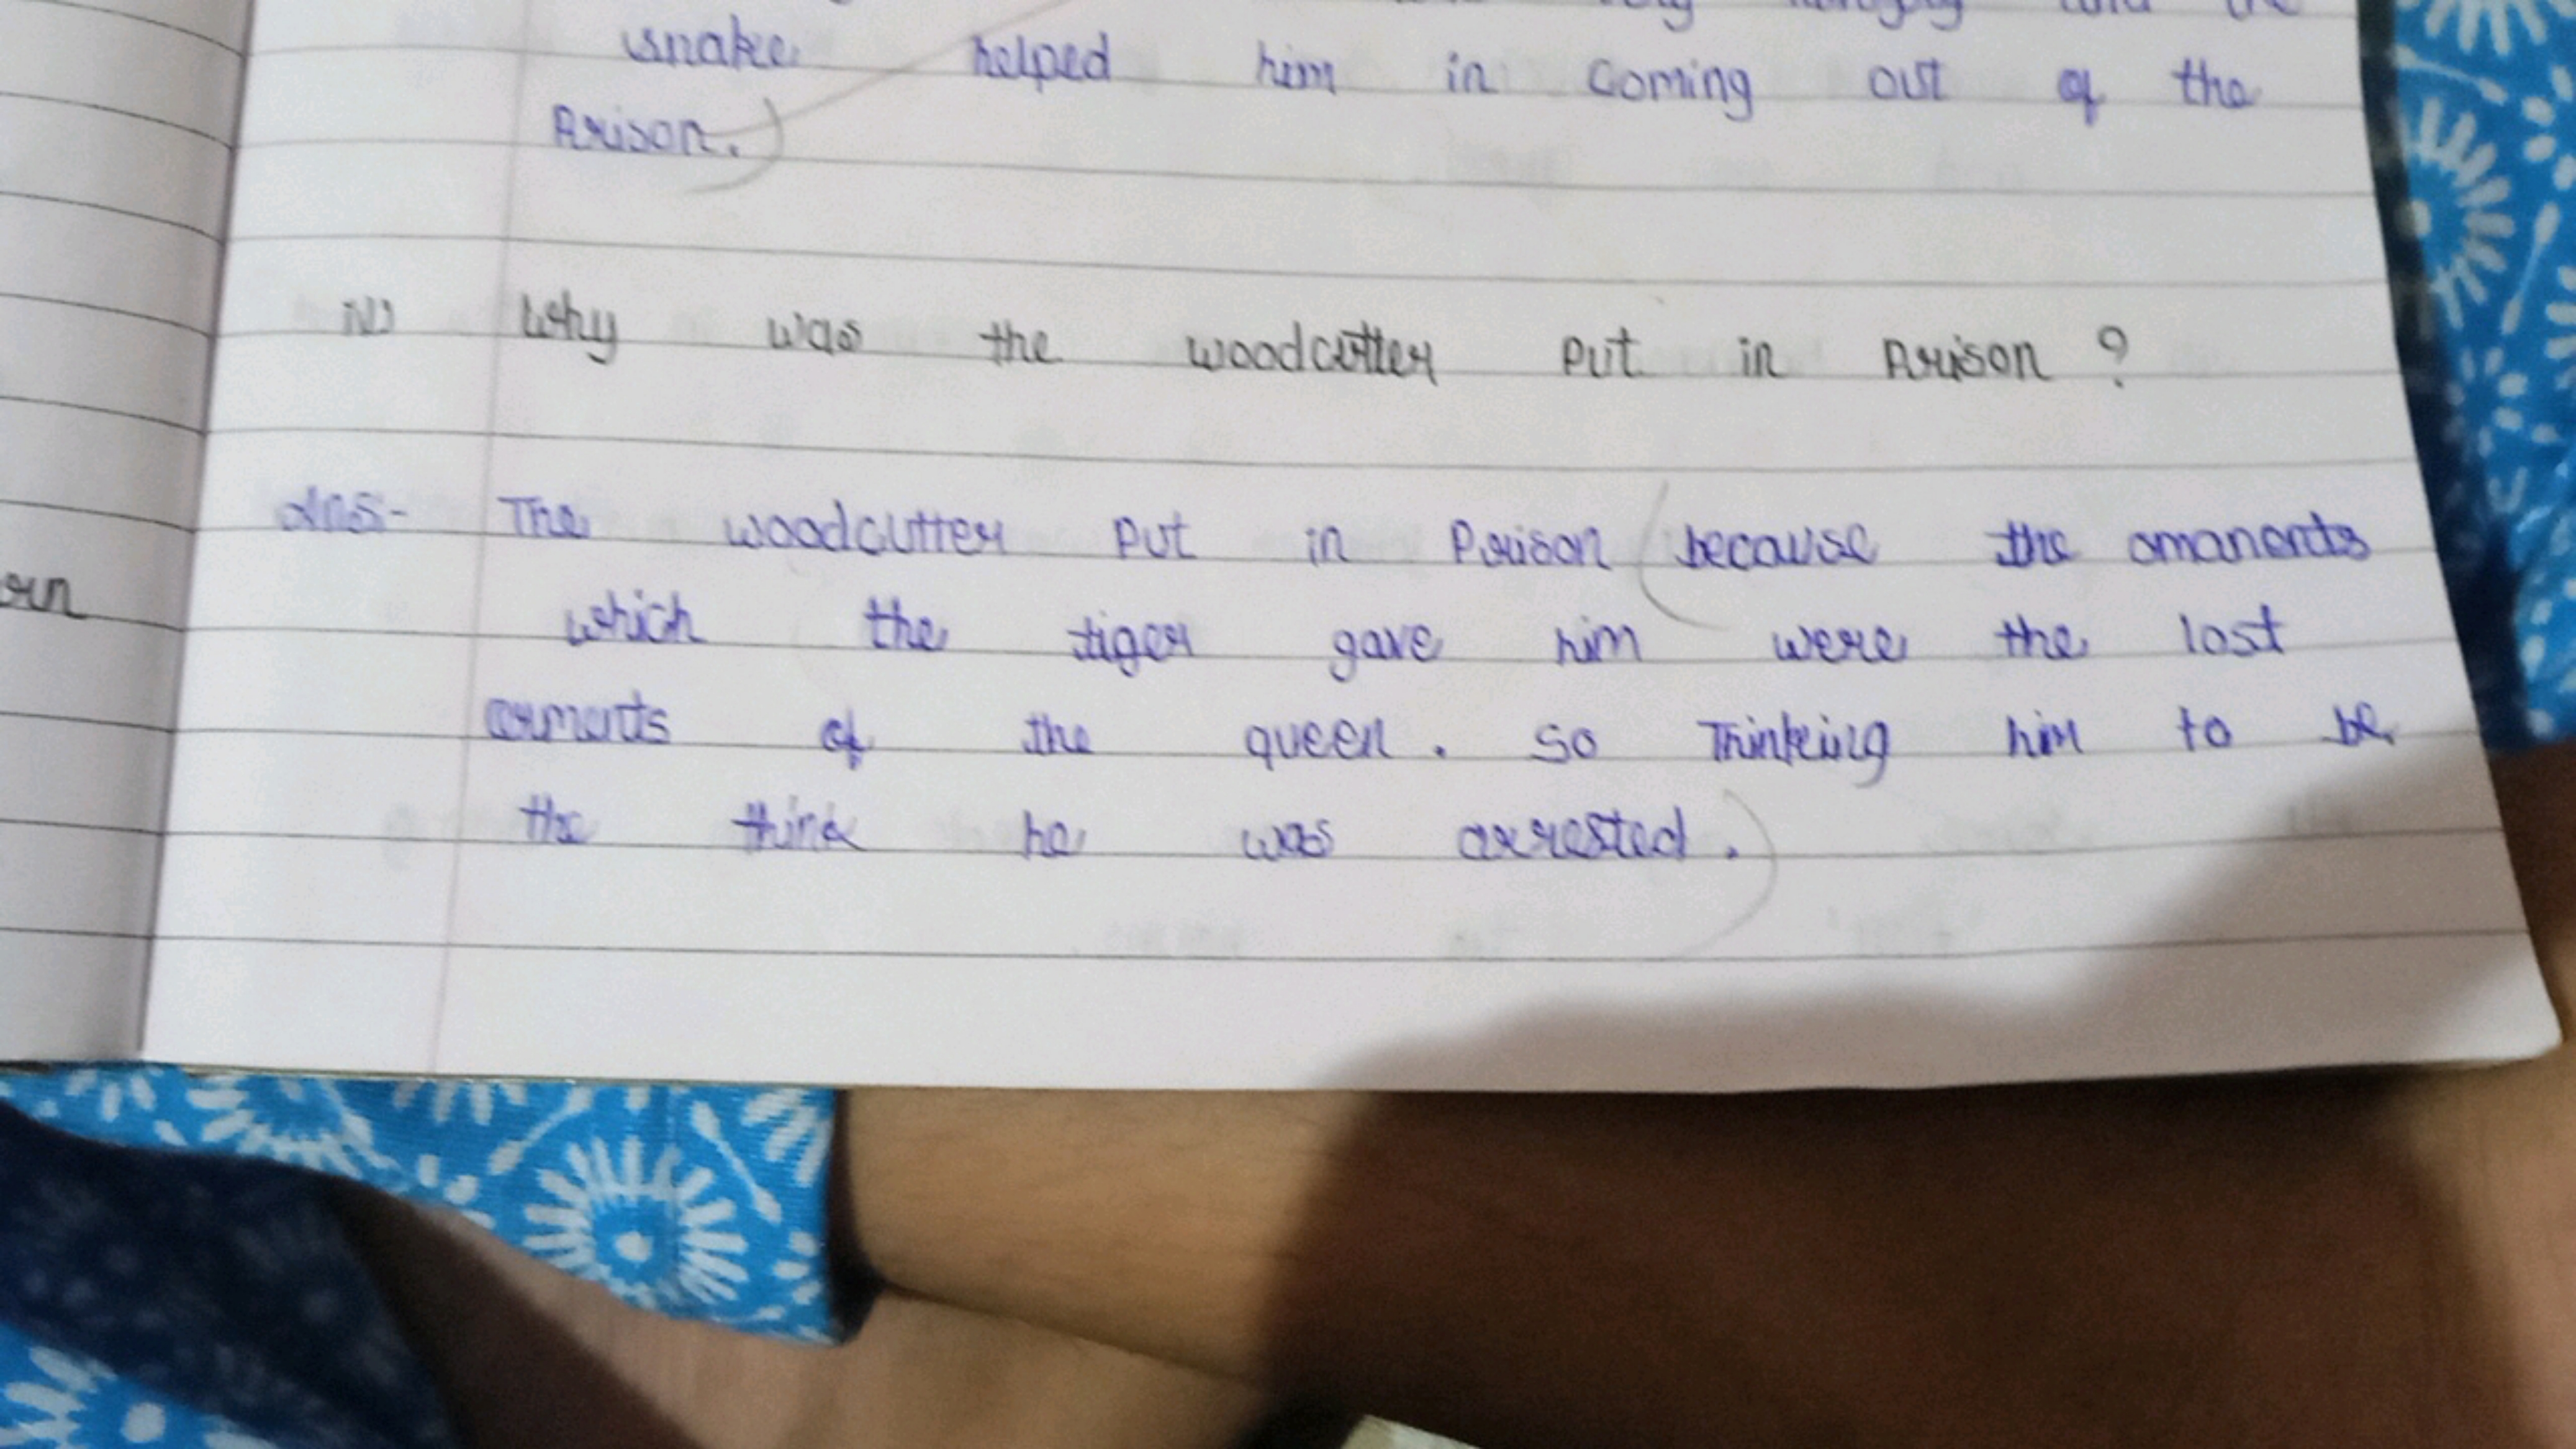 and the
snake helped him in coming out of the
Prison.)
iv) Why was the woodcutter put in Prison ?
Ans- The woodcutter put in Prison (because the omanents
which the tiger gave him were the lost
orn
ornments of the queen. So Thinking him to be
the think he was arrested.)